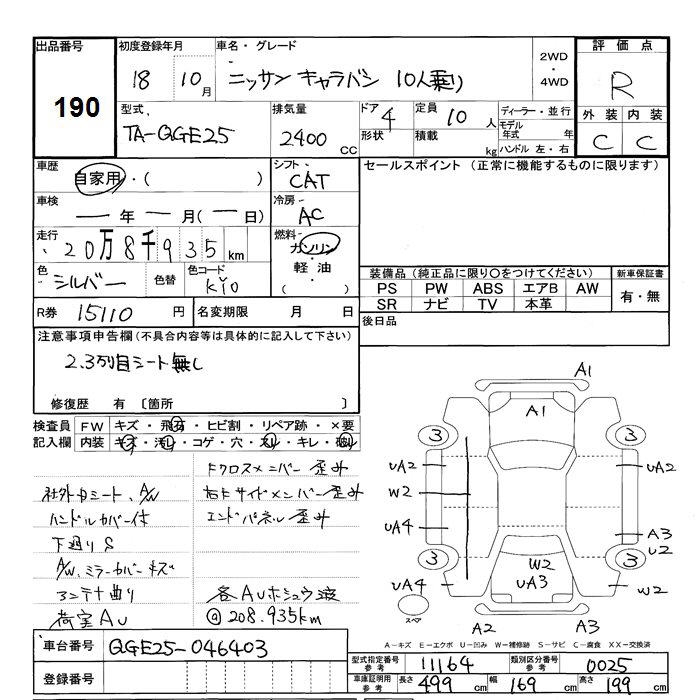 出品番号 190
初度登録年月 18 10月
車名・グレード ニッサン キャラバン 10人乗り
2WD・4WD
評価点 R
型式 TA-QGE25
排気量 2400 CC
ドア形状 4
定員 10 人
積載 kg
ディーラー・並行
モデル年式 年
ハンドル 左・右
外装 内装
C C
車歴 自家用・( )
シフト CAT
セールスポイント (正常に機能するものに限ります)
車検 ― 年 ― 月(― 日)
冷房 AC
走行 20万8千935 km
燃料 ガソリン・軽油・( )
色 シルバー 色替 色コード KY0
装備品(純正品に限り○をつけてください) 新車保証書
PS PW ABS エアB AW 有・無
SR ナビ TV 本革
R券 15110 円 名変期限 月 日
後日品
注意事項申告欄(不具合内容等は具体的に記入して下さい)
2.3列目シート無し
修復歴 有 〔箇所 〕
検査員記入欄 FW キズ・飛石・ヒビ割・リペア跡・×要
内装 キズ・汚レ・コゲ・穴・スレ・キレ・
Fクロスメンバー歪み
社外シート、A/W
右Fサイドメンバー歪み
ハンドルカバー付
エンドパネル歪み
下廻りS
A/W、ミラーカバーキズ
アンテナ曲り
各AUホシュウ渡
荷室AU
@208.935km
A1
A1
3 3
UA2 UA2
W2
UA4 A3
U2
3 3
W2
UA3
UA4 W2
スペア
A2 A3
A-キズ E-エクボ U-凹み W-補修跡 S-サビ C-腐食 XX-交換済
車台番号 QGE25-046403
型式指定番号参考 11164 類別区分番号参考 0025
登録番号
車庫証明用参考 長さ 499 cm 幅 169 cm 高さ 199 cm